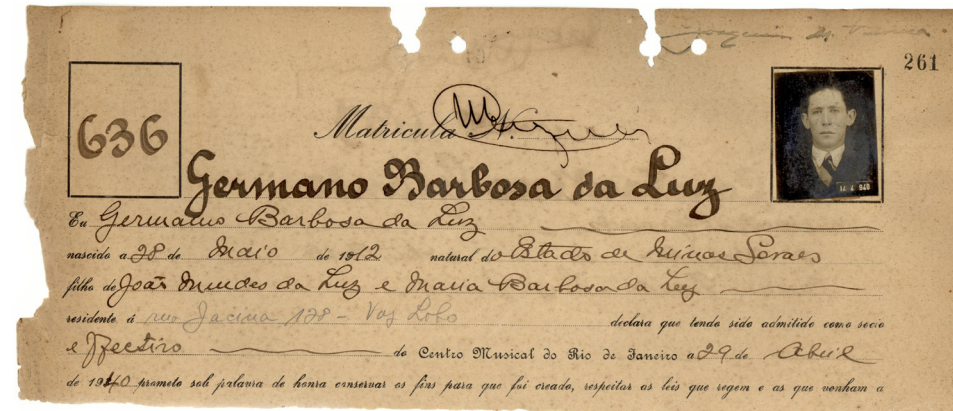 261
636
Matricula N.
14 4 940
Germano Barbosa da Luz
Eu Germano Barbosa da Luz
nascido a 28 de Maio de 1912 natural do Estado de Minas Geraes
filho de João Mendes da Luz e Maria Barbosa da Luz
residente á rua Jacina 128 - Vaz Lobo declara que tendo sido admitido como socio
e ffectivo do Centro Musical do Rio de Janeiro a 29 de Abril
de 1940 prometo sob palavra de honra conservar os fins para que foi creado, respeitar as leis que regem e as que venham a